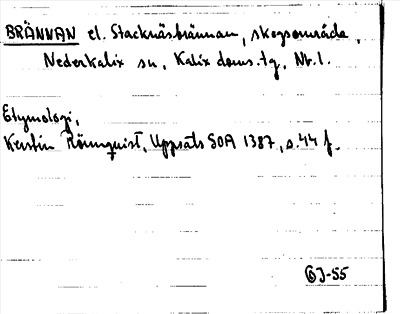 BRÄNNAN el. Stacknäsbrännan, skogsområde,
Nederkalix sn, Kalix doms.tg, Nb.l.
Etymologi,
Kerstin Rönnquist, Uppsats SOA 1387, s.44 f.
J-55